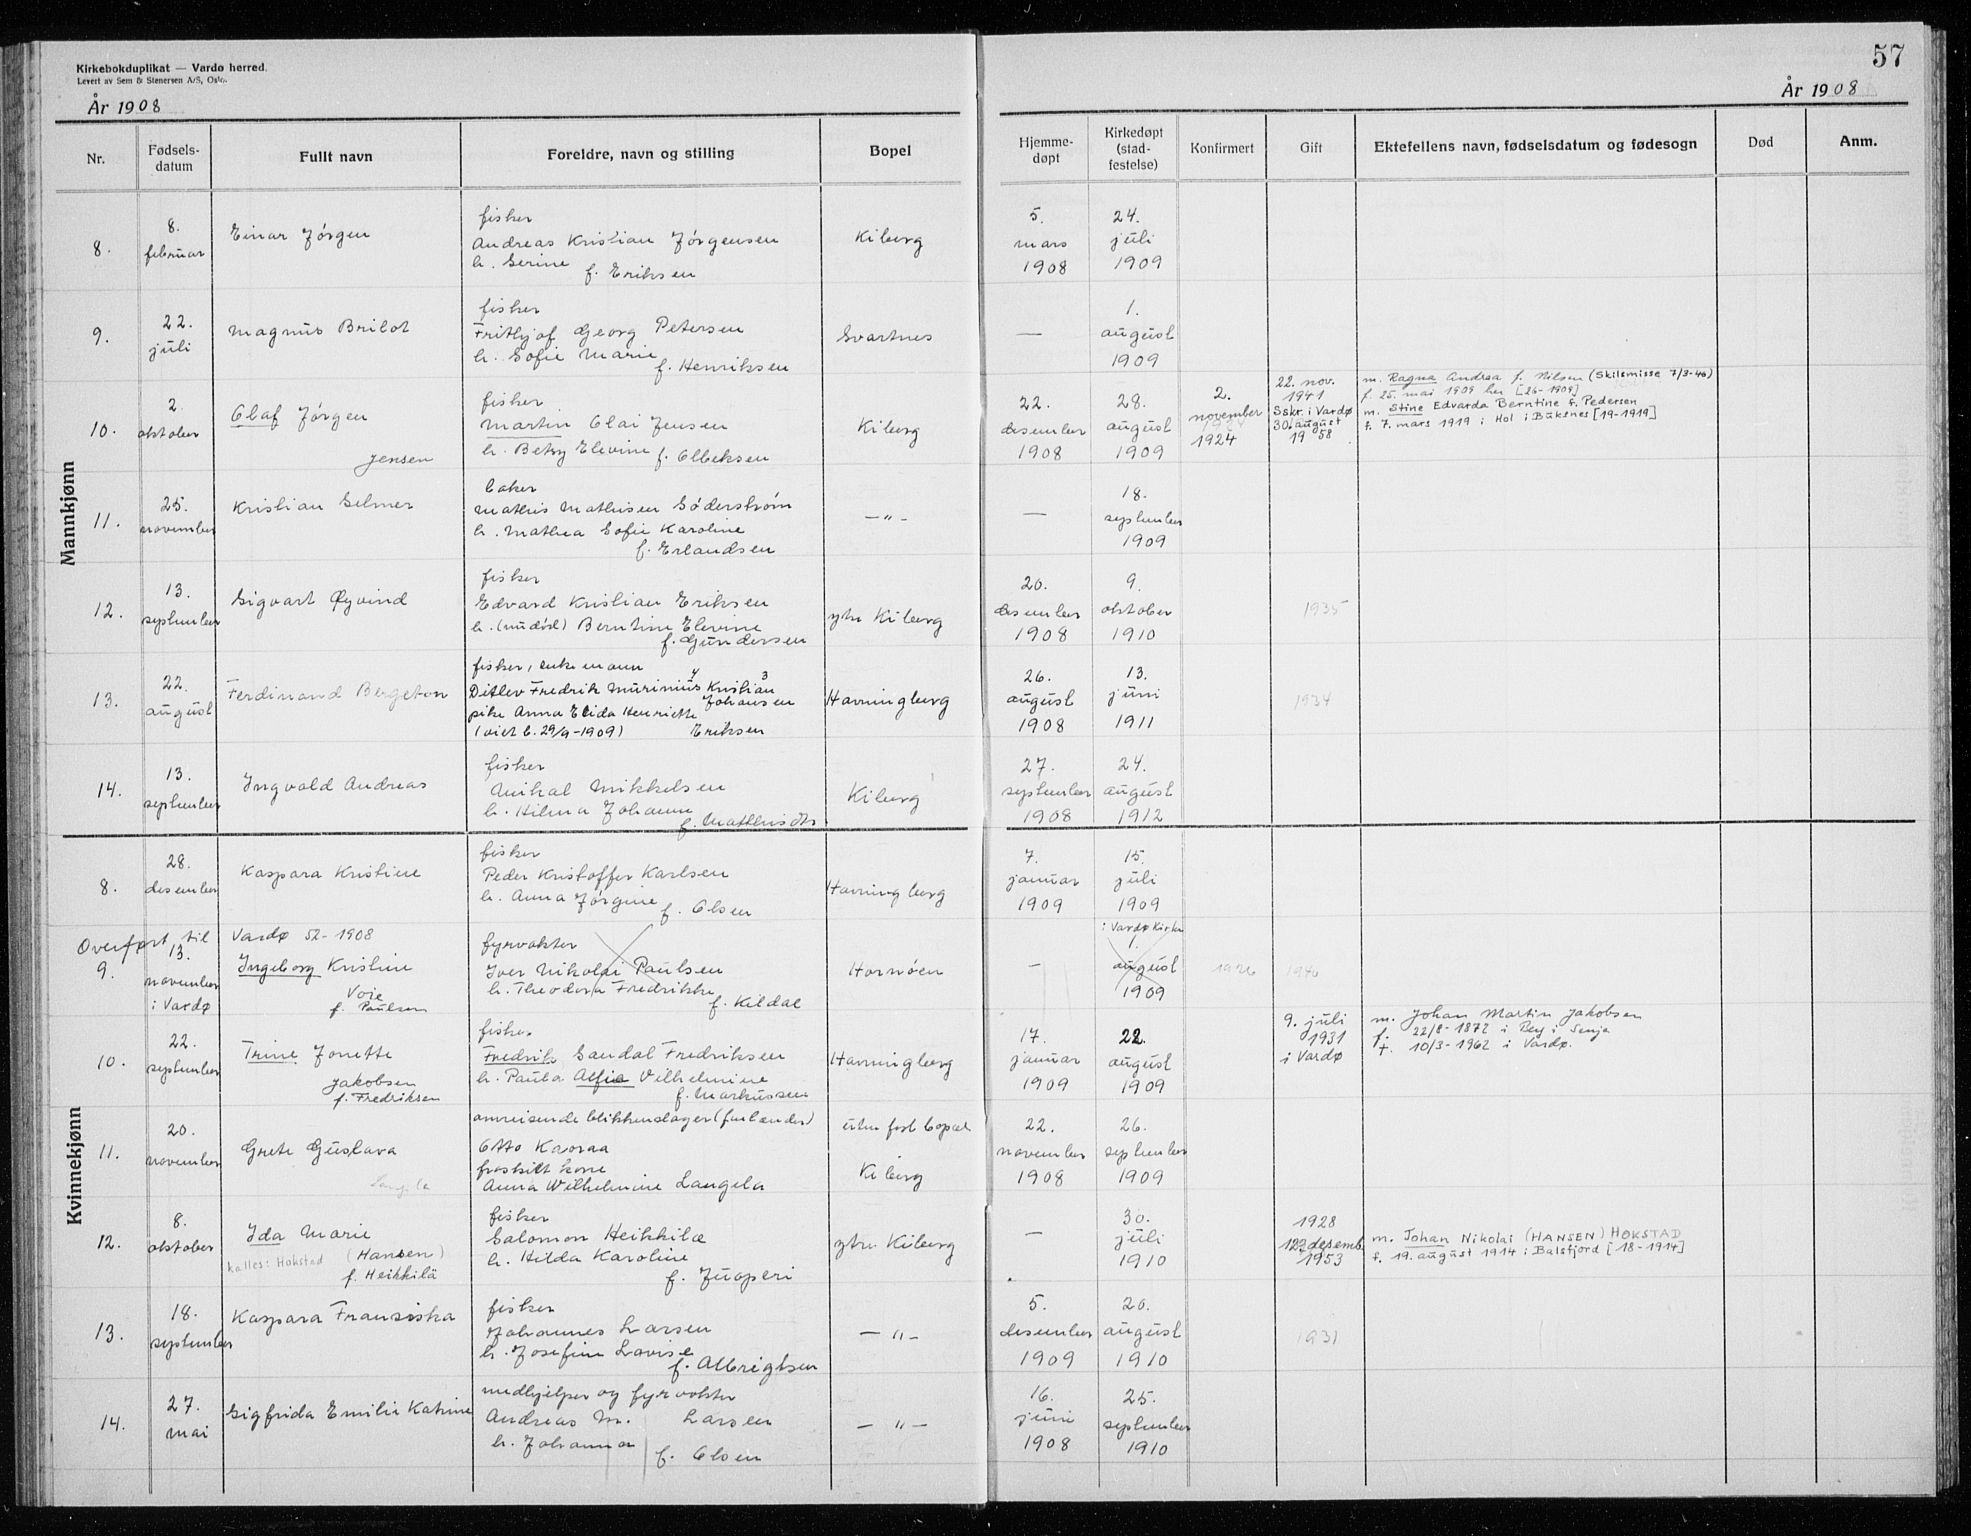 Kirkebokduplikat — Vardø herred.
Levert av Sem & Stenersen A/S, Oslo.
57
År 1908
År 1908
Nr.
Fødsels-
datum
Fullt navn
Foreldre, navn og stilling
Bopel
Hjemme-
døpt
Kirkedøpt
(stad-
festelse)
Konfirmert
Gift
Ektefellens navn, fødselsdatum og fødesogn
Død
Anm.
Mannkjønn
8.
8.
februar
Einar Jørgen
fisker
Andreas Kristian Jørgensen
h. Serine
f. Eriksen
Kiberg
5.
mars
1908
24.
juli
1909
9.
22.
juli
Magnus Brilot
fisker
Frithjof Georg Petersen
h. Sofie Marie
f. Henriksen
Svartnes
—
1.
august
1909
10.
2.
oktober
Olaf Jørgen
Jensen
fisker
Martin Olai Jensen
h. Betsy Elevine
f. Olbeksen
Kiberg
22.
desember
1908
28.
august
1909
2.
november
1924
22. nov.
1941
Sskr. i Vardø
30. august
1958
m. Ragna Andrea f. Nilsen (Skilsmisse 7/3-46)
f. 25. mai 1909 her [26-1909]
m. Stine Edvarda Berntine f. Pedersen
f. 7. mars 1919 i Hol i Buksnes [19-1919]
11.
25.
november
Kristian Selmer
baker
Mathis Mathisen Söderstrøm
h. Mathea Sofie Karoline
f. Erlandsen
—"—
—
18.
september
1909
12.
13.
september
Sigvart Øyvind
fisker
Edvard Kristian Eriksen
h. (nu død) Berntine Elevine
f. Gundersen
ytre Kiberg
20.
desember
1908
9.
oktober
1910
1935
13.
22.
august
Ferdinand Bergeton
fisker, enkemann
Ditlev Fredrik Murinius Kristian
Johansen
pike Anna Elida Henriette
(viet b. 29/9-1909) Eriksen
Havningberg
26.
august
1908
13.
juni
1911
1934
14.
13.
september
Ingvald Andreas
fisker
Mikal Mikkelsen
h. Hilma Johanne
f. Mathisdtr
Kiberg
27.
september
1908
24.
august
1912
Kvinnekjønn
8.
28.
desember
Kaspara Kristine
fisker
Peder Kristoffer Karlsen
h. Anna Jørgine
f. Olsen
Havningberg
7.
januar
1909
15.
juli
1909
Overført til Vardø 52-1908
9.
13.
november
i Vardø
Ingeborg Kristine
Voie
f. Paulsen
fyrvokter
Iver Nikolai Paulsen
h. Theodora Fredrikke
f. Kildal
Hornøen
—
i Vardø Kirke
1.
august
1909
1926
1946
10.
22.
september
Trine Jonette
Jakobsen
f. Fredriksen
fisker
Fredrik Sandal Fredriksen
h. Paula Alfia Vilhelmine
f. Markussen
Havningberg
17.
januar
1909
22.
august
1909
9. juli
1931
i Vardø
m. Johan Martin Jakobsen
f. 22/8-1872 i Berg i Senja
†. 10/3-1962 i Vardø.
11.
20.
november
Grete Gustava
Langela
omreisende blikkenslager (finlender)
Otto Kaoraa
fraskilt kone
Anna Wilhelmine Langela
uten fast bopæl
Kiberg
22.
november
1908
26.
september
1909
12.
8.
oktober
Ida Marie
(Hansen)
kalles: Hokstad
f. Heikkilä
fisker
Salomon Heikkilæ
h. Hilda Karoline
f. Juoperi
ytre Kiberg
—
30.
juli
1910
1928
12. desemb.
1953
m. Johan Nikolai (HANSEN) HOKSTAD
f. 19. august 1914 i Balsfjord [18-1914]
13.
18.
september
Kaspara Fransiska
fisker
Johannes Larsen
h. Josefine Lovise
f. Albrigtsen
—"—
5.
desember
1909
20.
august
1910
1931
14.
27.
mai
Sigfrida Emilie Katrine
medhjelper og fyrvokter
Andreas M. Larsen
h. Johanna
f. Olsen
—"—
16.
juni
1908
25.
september
1910